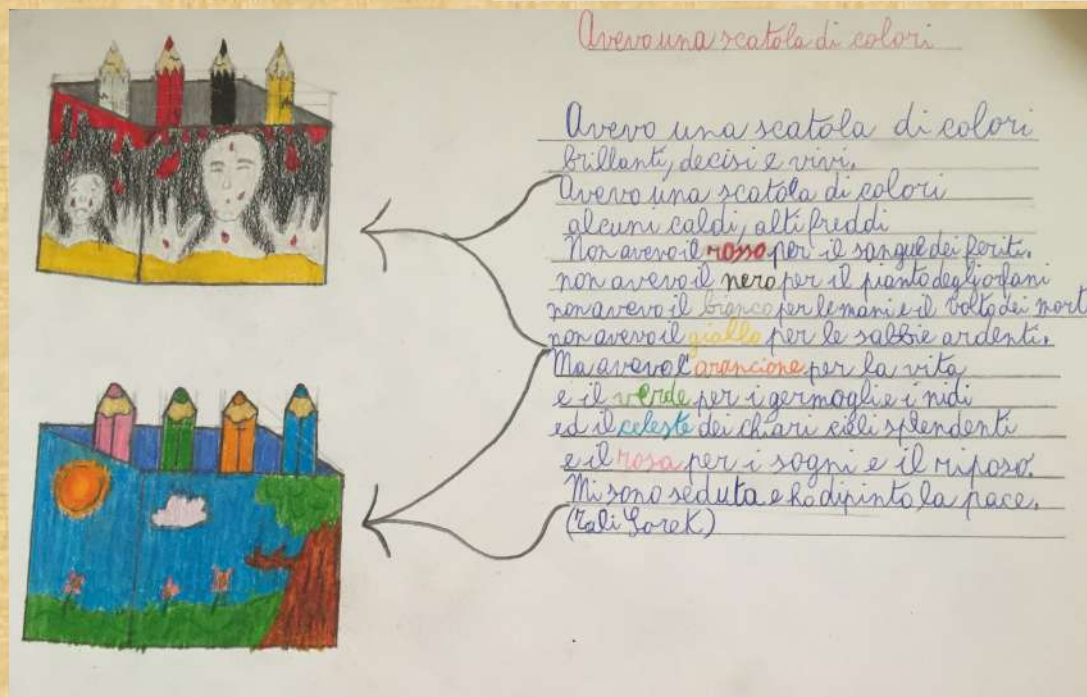 Avevo una scatola di colori
Avevo una scatola di colori
brillanti, decisi e vivi.
Avevo una scatola di colori
alcuni caldi, alti freddi
Non avevo il rosso per il sangue dei feriti.
non avevo il nero per il pianto degli orfani
non avevo il bianco per le mani e il volto dei morti
non avevo il giallo per le sabbie ardenti.
Ma avevo l'arancione per la vita
e il verde per i germogli e i nidi
ed il celeste dei chiari cieli splendenti
e il rosa per i sogni e il riposo.
Mi sono seduta e ho dipinto la pace.
(Tali Sorek)